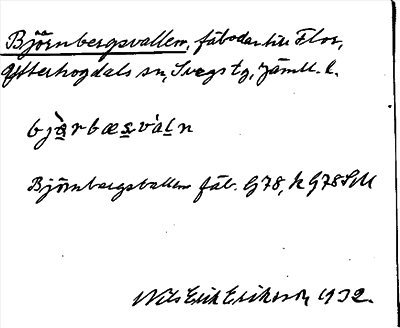 Björnbergsvallen, fäbodar till Flor,
Ytterhogdals sn, Svegs tg, Jämtl. l.
bjə̀rbæsvàln
Björnbergsvallen fäb. G78, k G78 SM
Nils Erik Eriksson 1932.